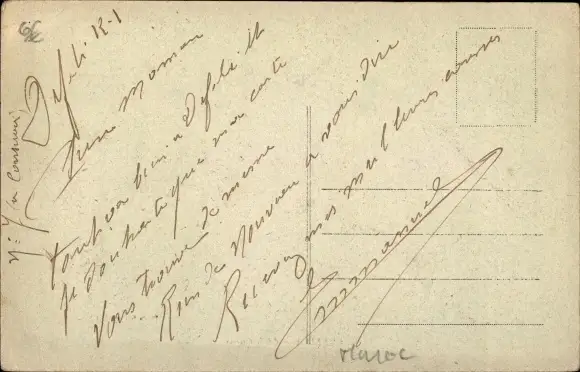 Defili 12-1
Chère Maman
Tout va bien a Defili et
Je souhaite que ma carte
Vous trouve de même
Rien de Nouveau a vous dire
Recevez mes meilleurs baisers
Emmanuel
Maroc